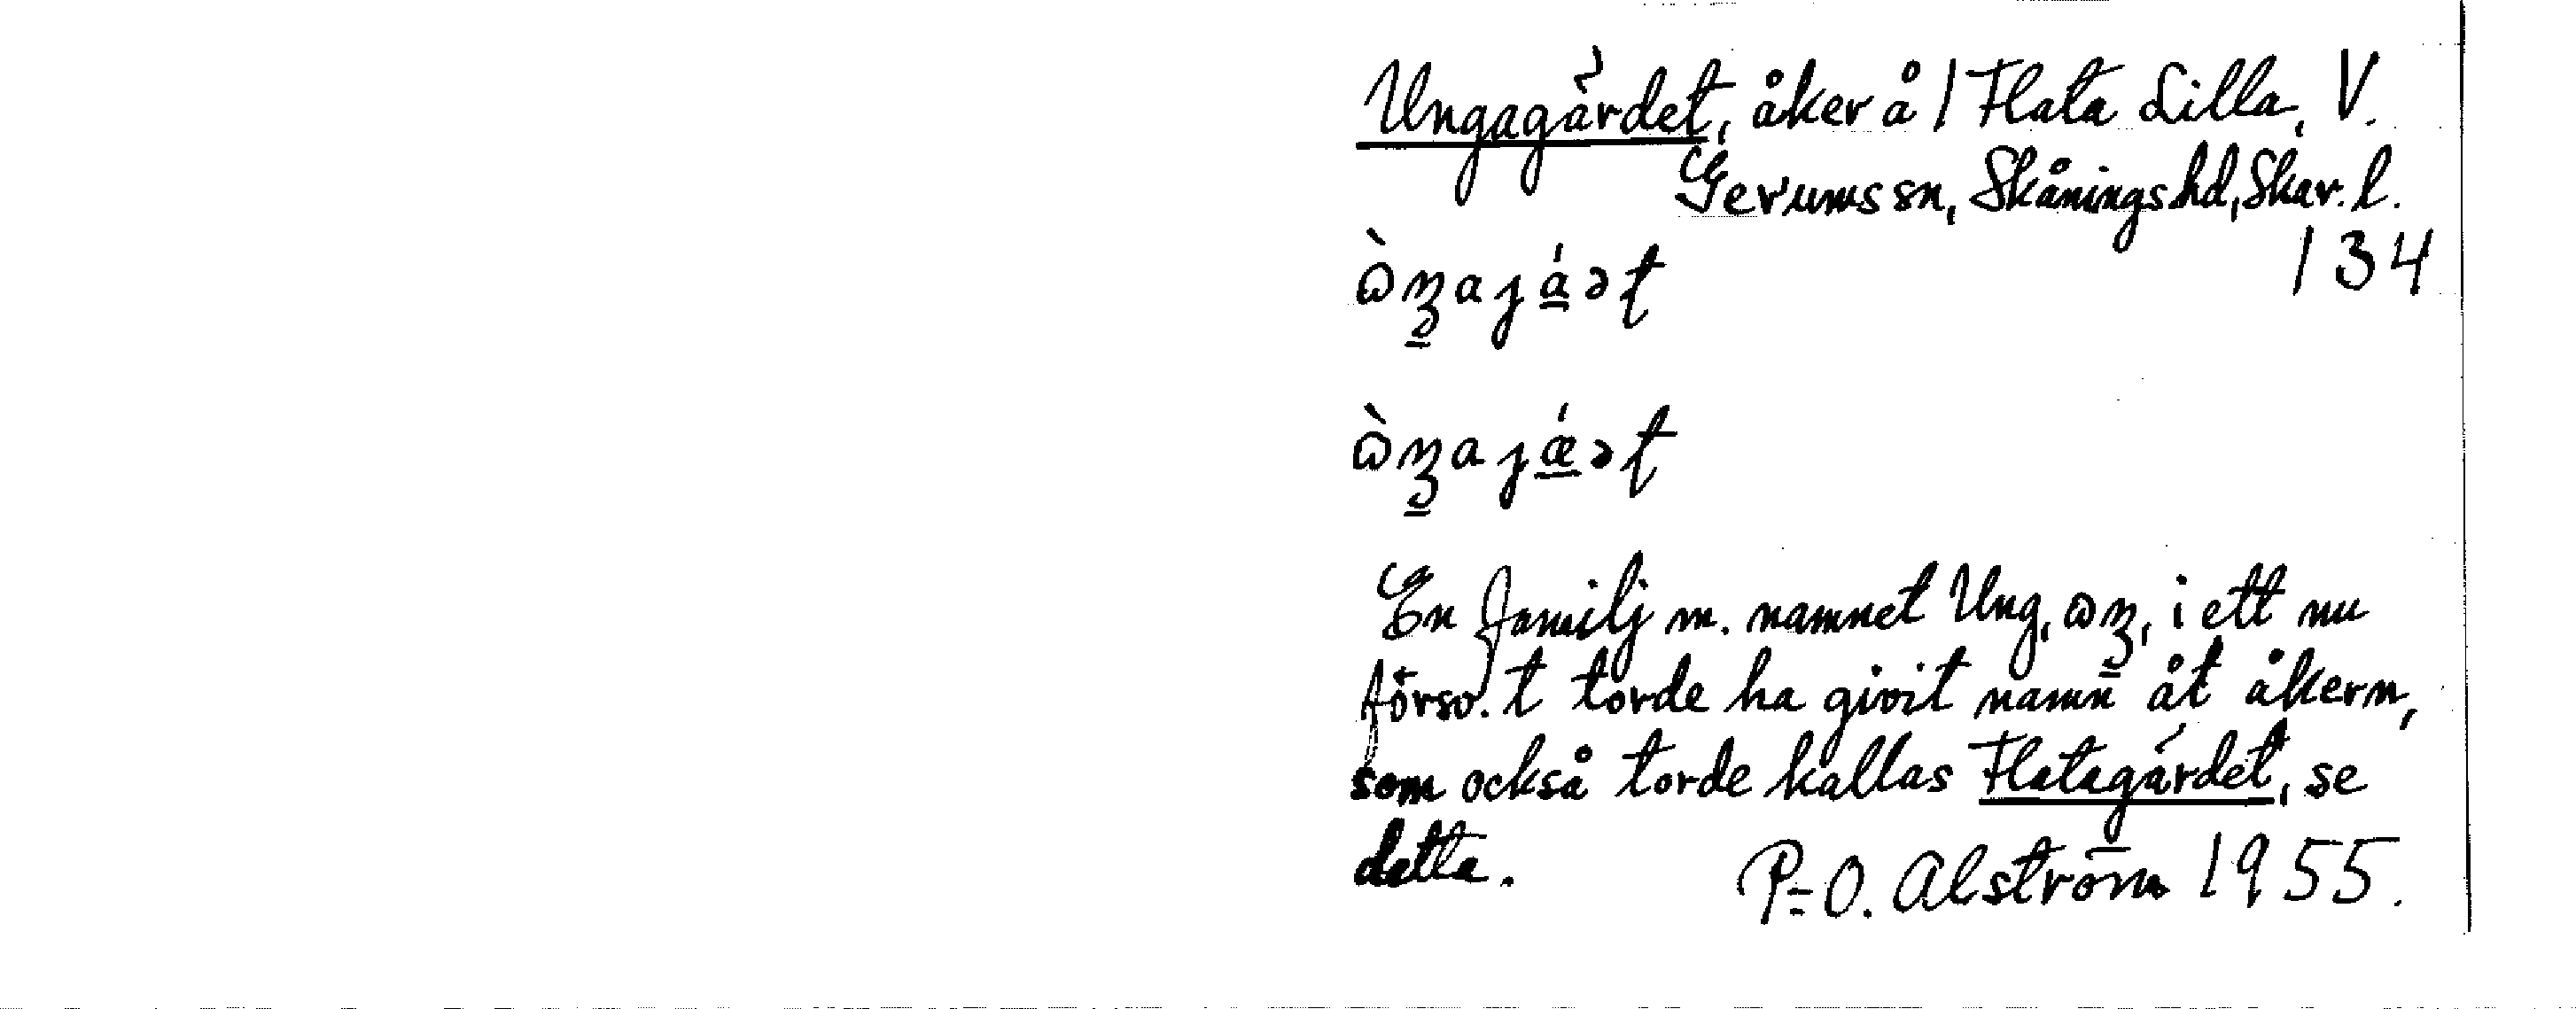 Ungagärdet, åker å 1 Flata Lilla, V.
Gerums sn, Skånings hd, Skar. l.
134
En familj m. namnet Ung, i ett nu
försv. t torde ha givit namn åt åkern,
som också torde kallas Flatagärdet, se
detta.
P-O. Alström 1955.